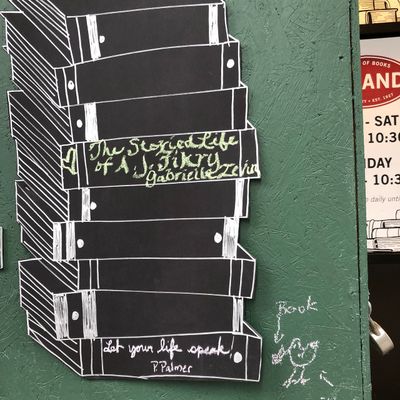 The Storied Life
of A.J. Fikry
Gabrielle Zevin
Let your life speak.
P. Palmer
Book
OF BOOKS
AND
EST. 1927
- SAT
10:30
DAY
- 10:3
daily until